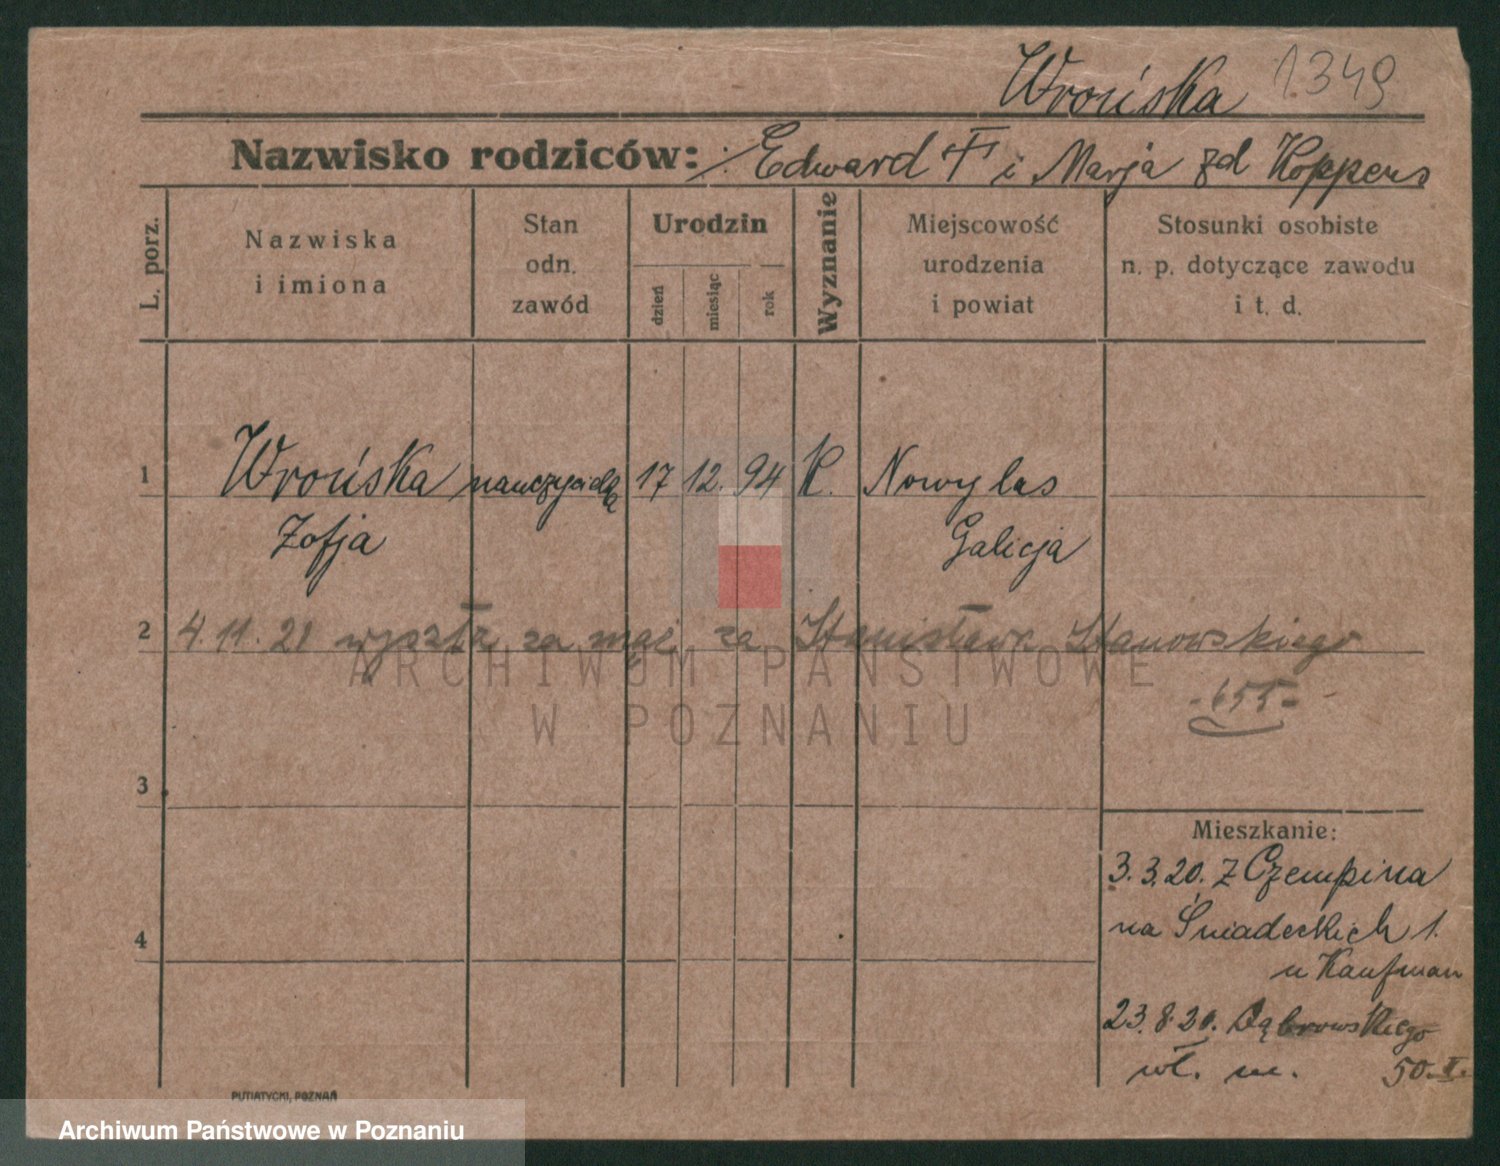 Wrońska 1349
Nazwisko rodziców: Edward † i Marja zd Koppens
L. porz.
Nazwiska
i imiona
Stan
odn.
zawód
Urodzin
dzień
miesiąc
rok
Wyznanie
Miejscowość
urodzenia
i powiat
Stosunki osobiste
n. p. dotyczące zawodu
i t. d.
1 Wrońska nauczycielką 17 12. 94 K. Nowy las
Zofja Galicja
2 4.11.21 wyszła za mąż za Stanisława Stanowskiego
ARCHIWUM PAŃSTWOWE
- 655 -
W POZNANIU
3
Mieszkanie:
3.3.20. z Czempina
na Śniadeckich 1.
4
u Kaufman
23.8.20. Dąbrowskiego
wł. m. 50. II.
PUTIATYCKI, POZNAŃ
Archiwum Państwowe w Poznaniu